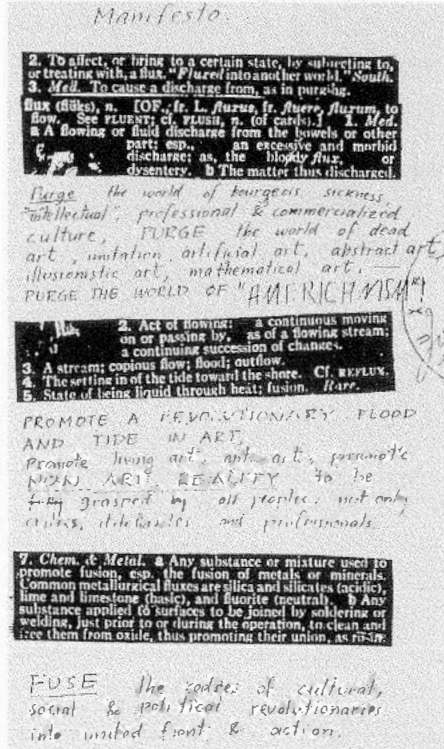 Manifesto
2. To affect, or bring to a certain state, by subjecting to,
or treating with, a flux. "Fluxed into another world." South.
3. Med. To cause a discharge from, as in purging.
flux (flŭks), n. [OF., fr. L. fluxus, fr. fluere, fluxum, to
flow. See FLUENT; cf. FLUSH, n. (of cards).] 1. Med.
a A flowing or fluid discharge from the bowels or other
part; esp., an excessive and morbid
discharge; as, the bloody flux, or
dysentery. b The matter thus discharged.
Purge the world of bourgeois sickness,
"intellectual", professional & commercialized
culture, PURGE the world of dead
art, imitation, artificial art, abstract art,
illusionistic art, mathematical art, —
PURGE THE WORLD OF "AMERICANISM"!
2. Act of flowing: a continuous moving
on or passing by, as of a flowing stream;
a continuing succession of changes.
3. A stream; copious flow; flood; outflow.
4. The setting in of the tide toward the shore. Cf. REFLUX.
5. State of being liquid through heat; fusion. Rare.
PROMOTE A REVOLUTIONARY FLOOD
AND TIDE IN ART,
Promote living art, anti-art, promote
NON ART REALITY to be
fully grasped by all peoples, not only
critics, dilettantes and professionals.
7. Chem. & Metal. a Any substance or mixture used to
promote fusion, esp. the fusion of metals or minerals.
Common metallurgical fluxes are silica and silicates (acidic),
lime and limestone (basic), and fluorite (neutral). b Any
substance applied to surfaces to be joined by soldering or
welding, just prior to or during the operation, to clean and
free them from oxide, thus promoting their union, as rosin.
FUSE the cadres of cultural,
social & political revolutionaries
into united front & action.